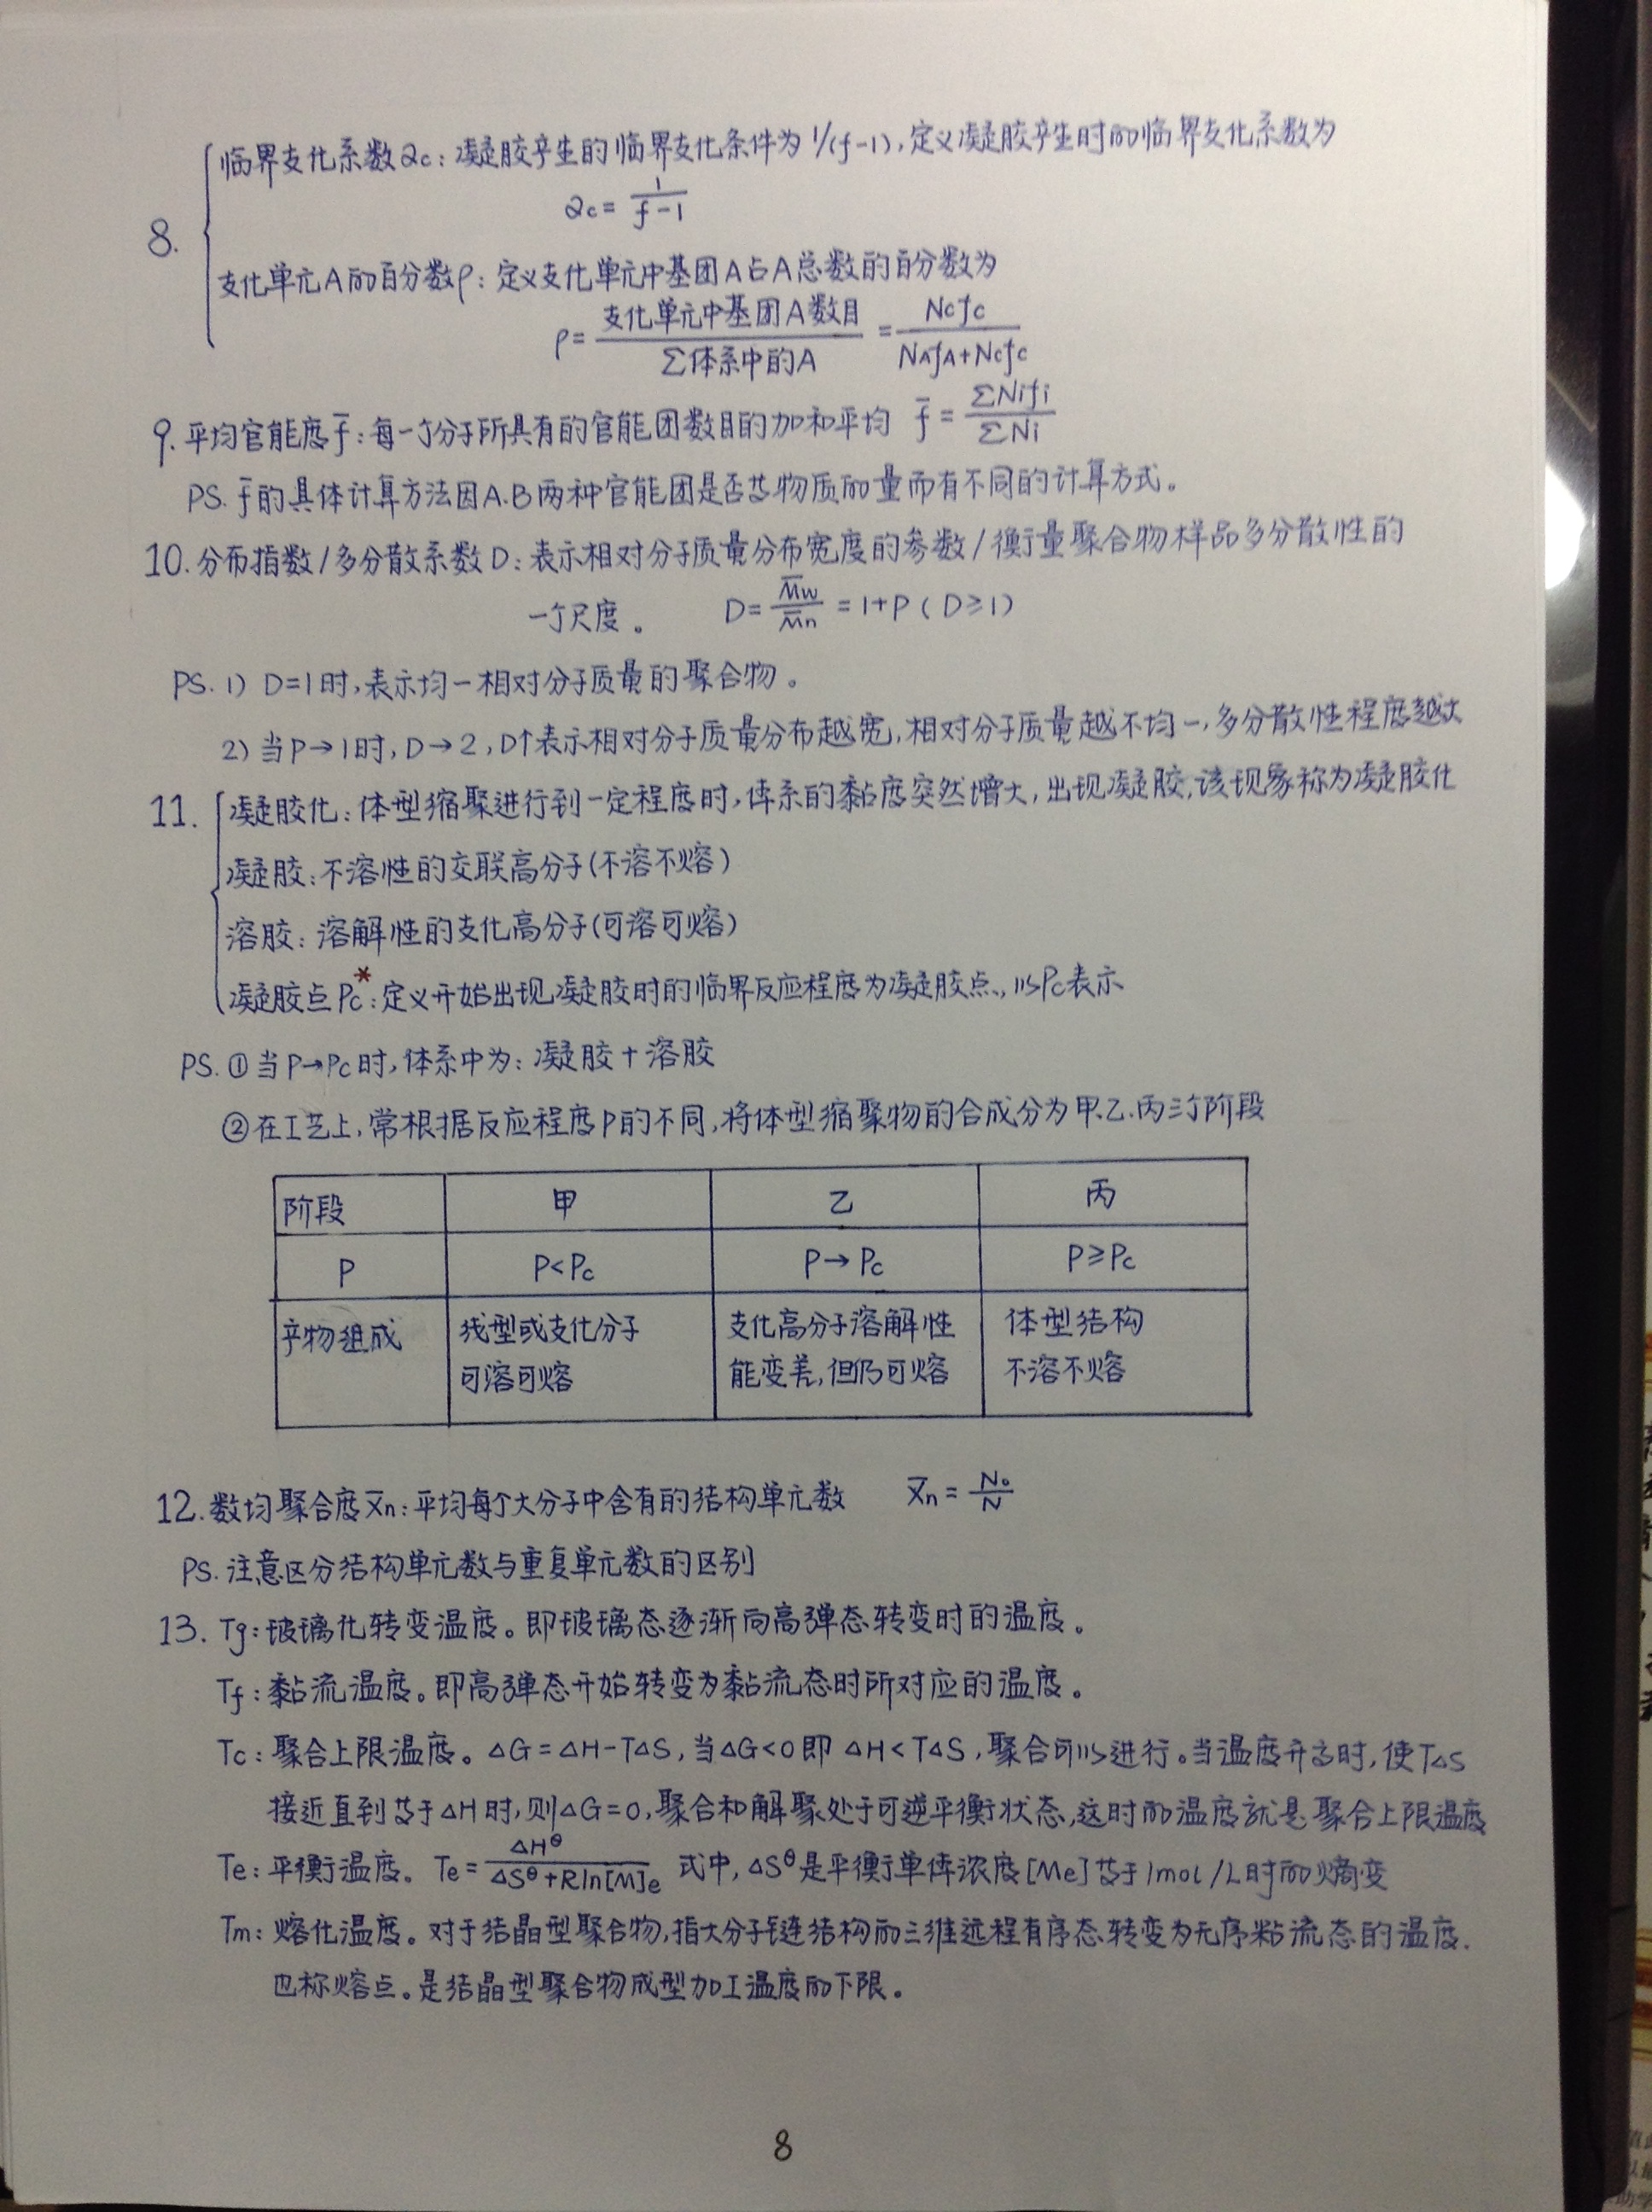 8.
临界支化系数αc：凝胶产生的临界支化条件为1/(f-1)，定义凝胶产生时的临界支化系数为
αc = 1/(f-1)
支化单元A的百分数ρ：定义支化单元中基团A占A总数的百分数为
ρ = 支化单元中基团A数目/Σ体系中的A = Ncfc/(NAfA+Ncfc)
9. 平均官能度f̄：每一个分子所具有的官能团数目的加和平均 f̄ = ΣNifi/ΣNi
PS. f̄的具体计算方法因A.B两种官能团是否等物质的量而有不同的计算方式。
10. 分布指数/多分散系数D：表示相对分子质量分布宽度的参数/衡量聚合物样品多分散性的
一个尺度。 D = M̄w/M̄n = 1+P (D≥1)
PS. 1) D=1时，表示均一相对分子质量的聚合物。
2) 当P→1时，D→2，D↑表示相对分子质量分布越宽，相对分子质量越不均一，多分散性程度越大
11. 凝胶化：体型缩聚进行到一定程度时，体系的黏度突然增大，出现凝胶，该现象称为凝胶化
凝胶：不溶性的交联高分子(不溶不熔)
溶胶：溶解性的支化高分子(可溶可熔)
凝胶点Pc*：定义开始出现凝胶时的临界反应程度为凝胶点，以Pc表示
PS. ①当P→Pc时，体系中为：凝胶+溶胶
②在工艺上，常根据反应程度P的不同，将体型缩聚物的合成分为甲.乙.丙三个阶段
阶段 甲 乙 丙
P P<Pc P→Pc P≥Pc
产物组成 线型或支化分子 支化高分子溶解性 体型结构
可溶可熔 能变差，但仍可熔 不溶不熔
12. 数均聚合度X̄n：平均每个大分子中含有的结构单元数 X̄n = N₀/N
PS. 注意区分结构单元数与重复单元数的区别
13. Tg：玻璃化转变温度。即玻璃态逐渐向高弹态转变时的温度。
Tf：黏流温度。即高弹态开始转变为黏流态时所对应的温度。
Tc：聚合上限温度。△G=△H-T△S，当△G<0即 △H<T△S，聚合可以进行。当温度升高时，使T△S
接近直到等于△H时，则△G=0，聚合和解聚处于可逆平衡状态，这时的温度就是聚合上限温度
Te：平衡温度。Te = △Hᶿ/(△Sᶿ+Rln[M]e) 式中，△Sᶿ是平衡单体浓度[Me]等于1mol/L时的熵变
Tm：熔化温度。对于结晶型聚合物，指大分子链结构的三维远程有序态转变为无序粘流态的温度.
也称熔点。是结晶型聚合物成型加工温度的下限。
8